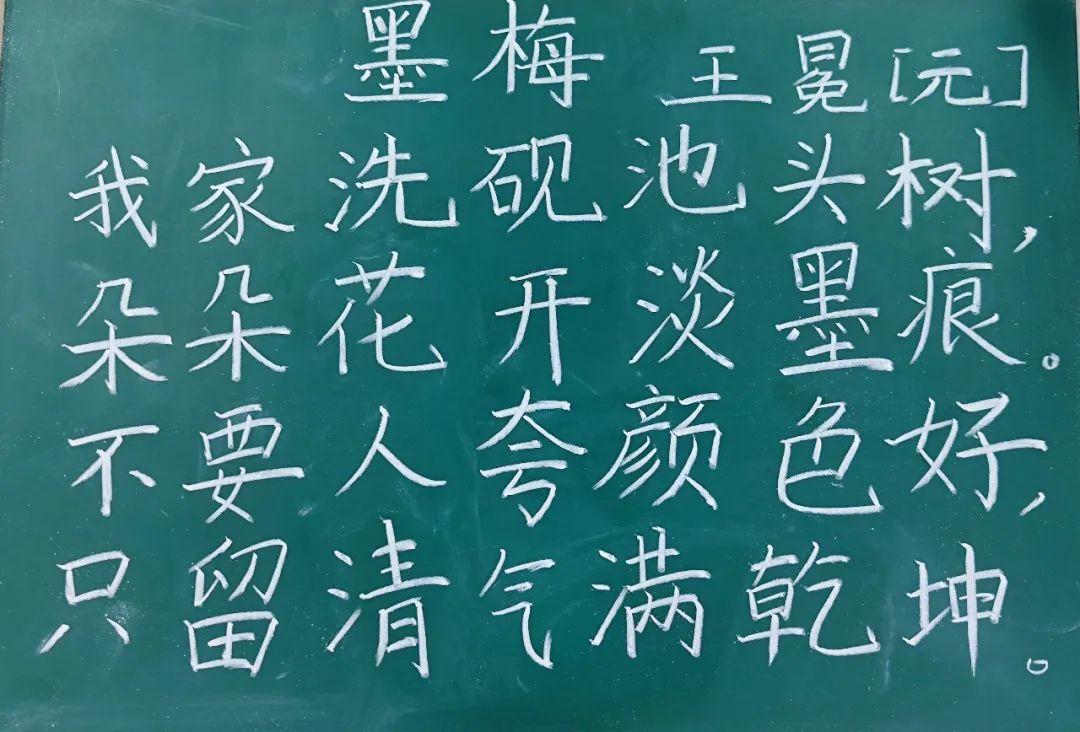 墨梅 王冕[元]
我家洗砚池头树,
朵朵花开淡墨痕。
不要人夸颜色好,
只留清气满乾坤。